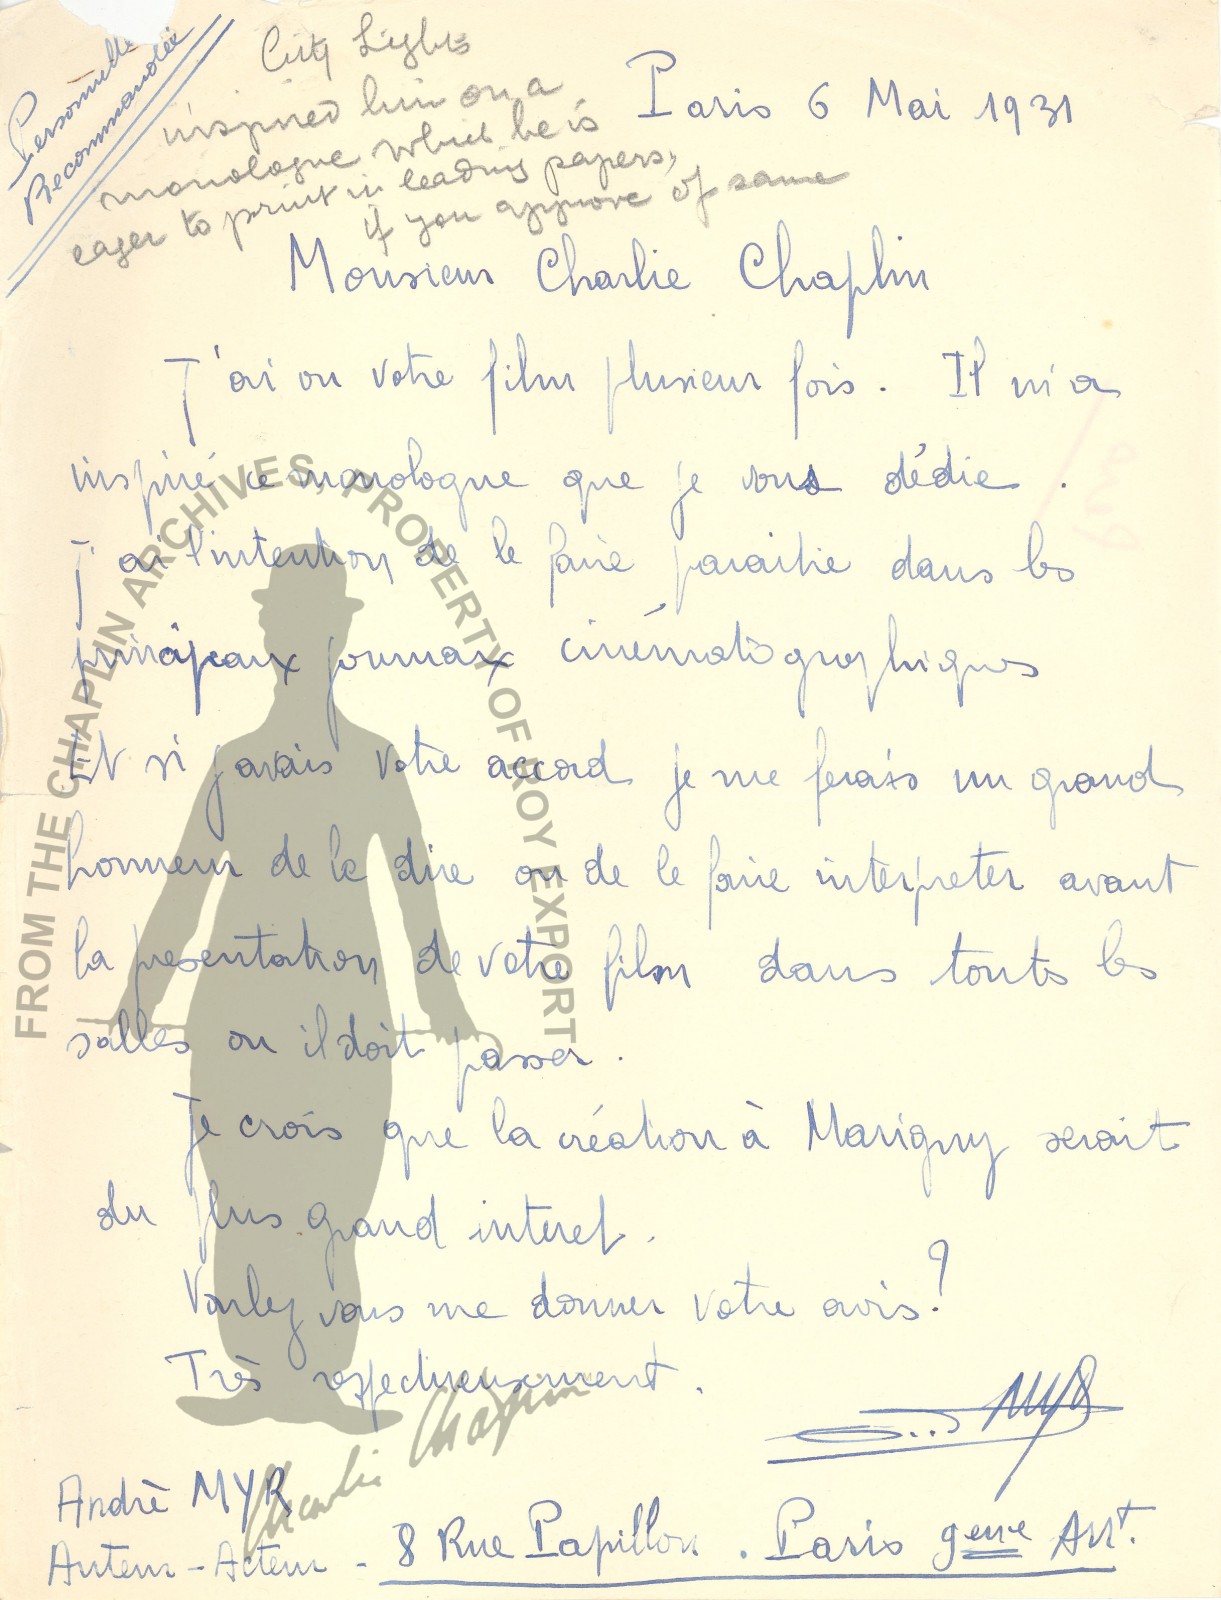 Personnelle
Recommandée
City Lights
inspired him on a
monologue which he is
eager to print in leading papers,
if you approve of same
Paris 6 Mai 1931
Monsieur Charlie Chaplin
J'ai vu votre film plusieur fois. Il m'a
inspiré ce monologue que je vous dédie.
J'ai l'intention de le faire paraitre dans les
principaux journaux cinématographiques
Et si j'avais votre accord je me ferais un grand
honneur de le dire ou de le faire interpreter avant
la presentation de votre film dans touts les
salles ou il doit passer.
Je crois que la création à Marigny serait
du plus grand interet.
Voulez vous me donner votre avis?
Très respectueusement.
André MYR
Auteur-Acteur - 8 Rue Papillon. Paris 9eme Arrt.
FROM THE CHAPLIN ARCHIVES, PROPERTY OF ROY EXPORT
Charlie Chaplin